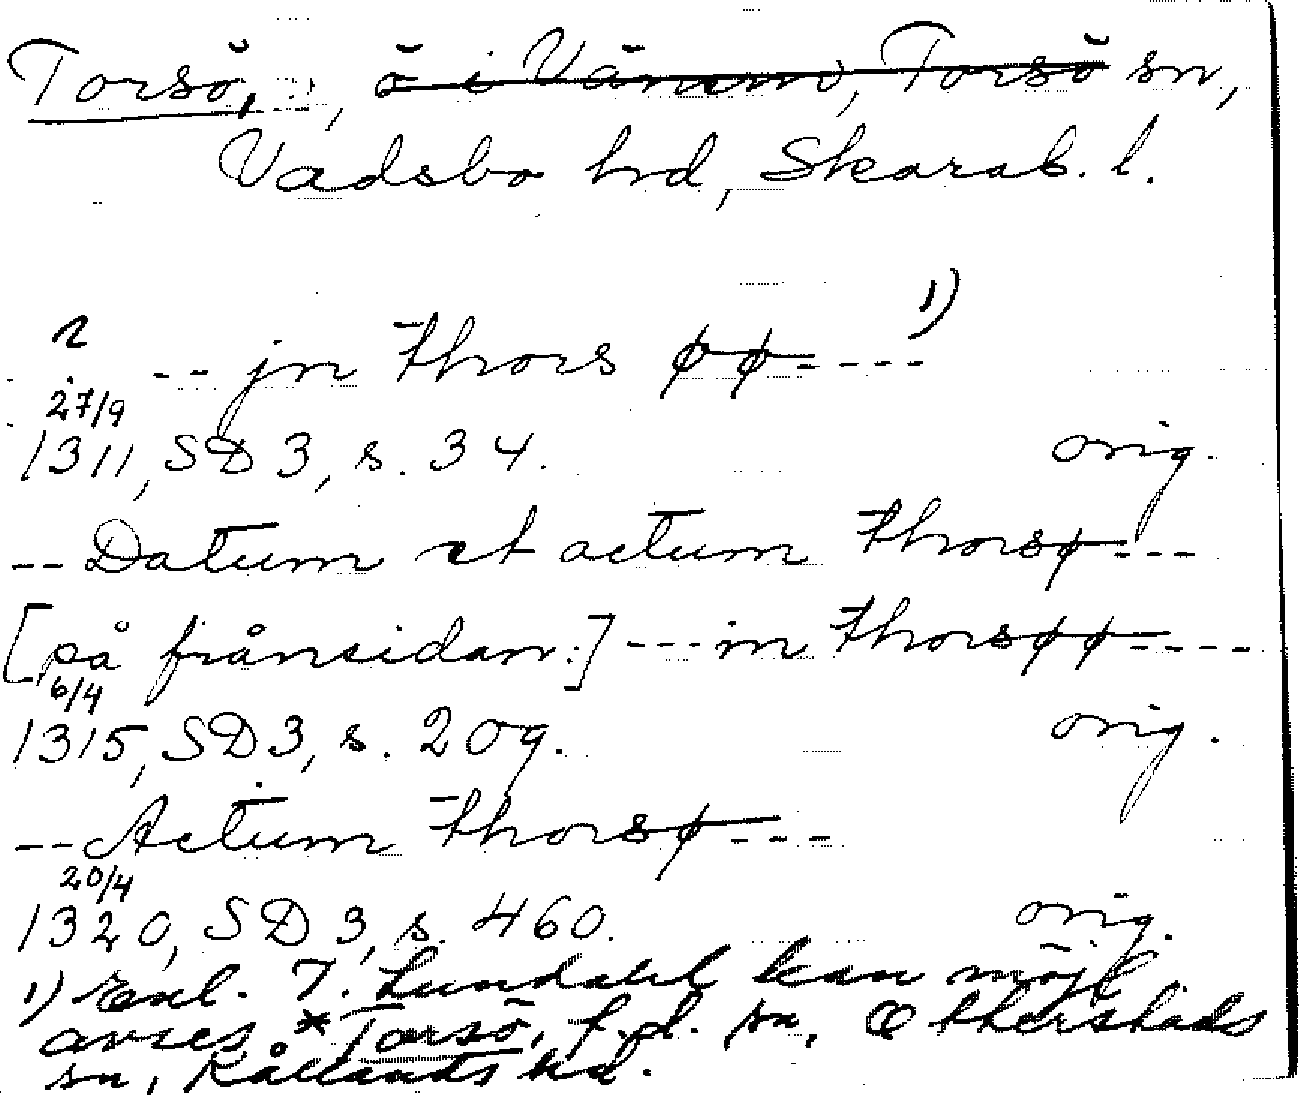 Torsö, , ö i Vänern, Torsö sn,
Vadsbo hd, Skarab. l.
-- jn thors øø ---- 1)
27/9
1311, SD 3, s. 34. orig.
-- Datum et actum thorsø ---
[på frånsidan:] --- in thorsøø ----
6/4
1315, SD 3, s. 209. orig.
-- Actum thorsø ---
20/4
1320, SD 3, s. 460. orig.
1) Enl. I. Lundahl kan möjl.
avses *Torsö, f.d. sn, Otterstads
sn, Kållands hd.